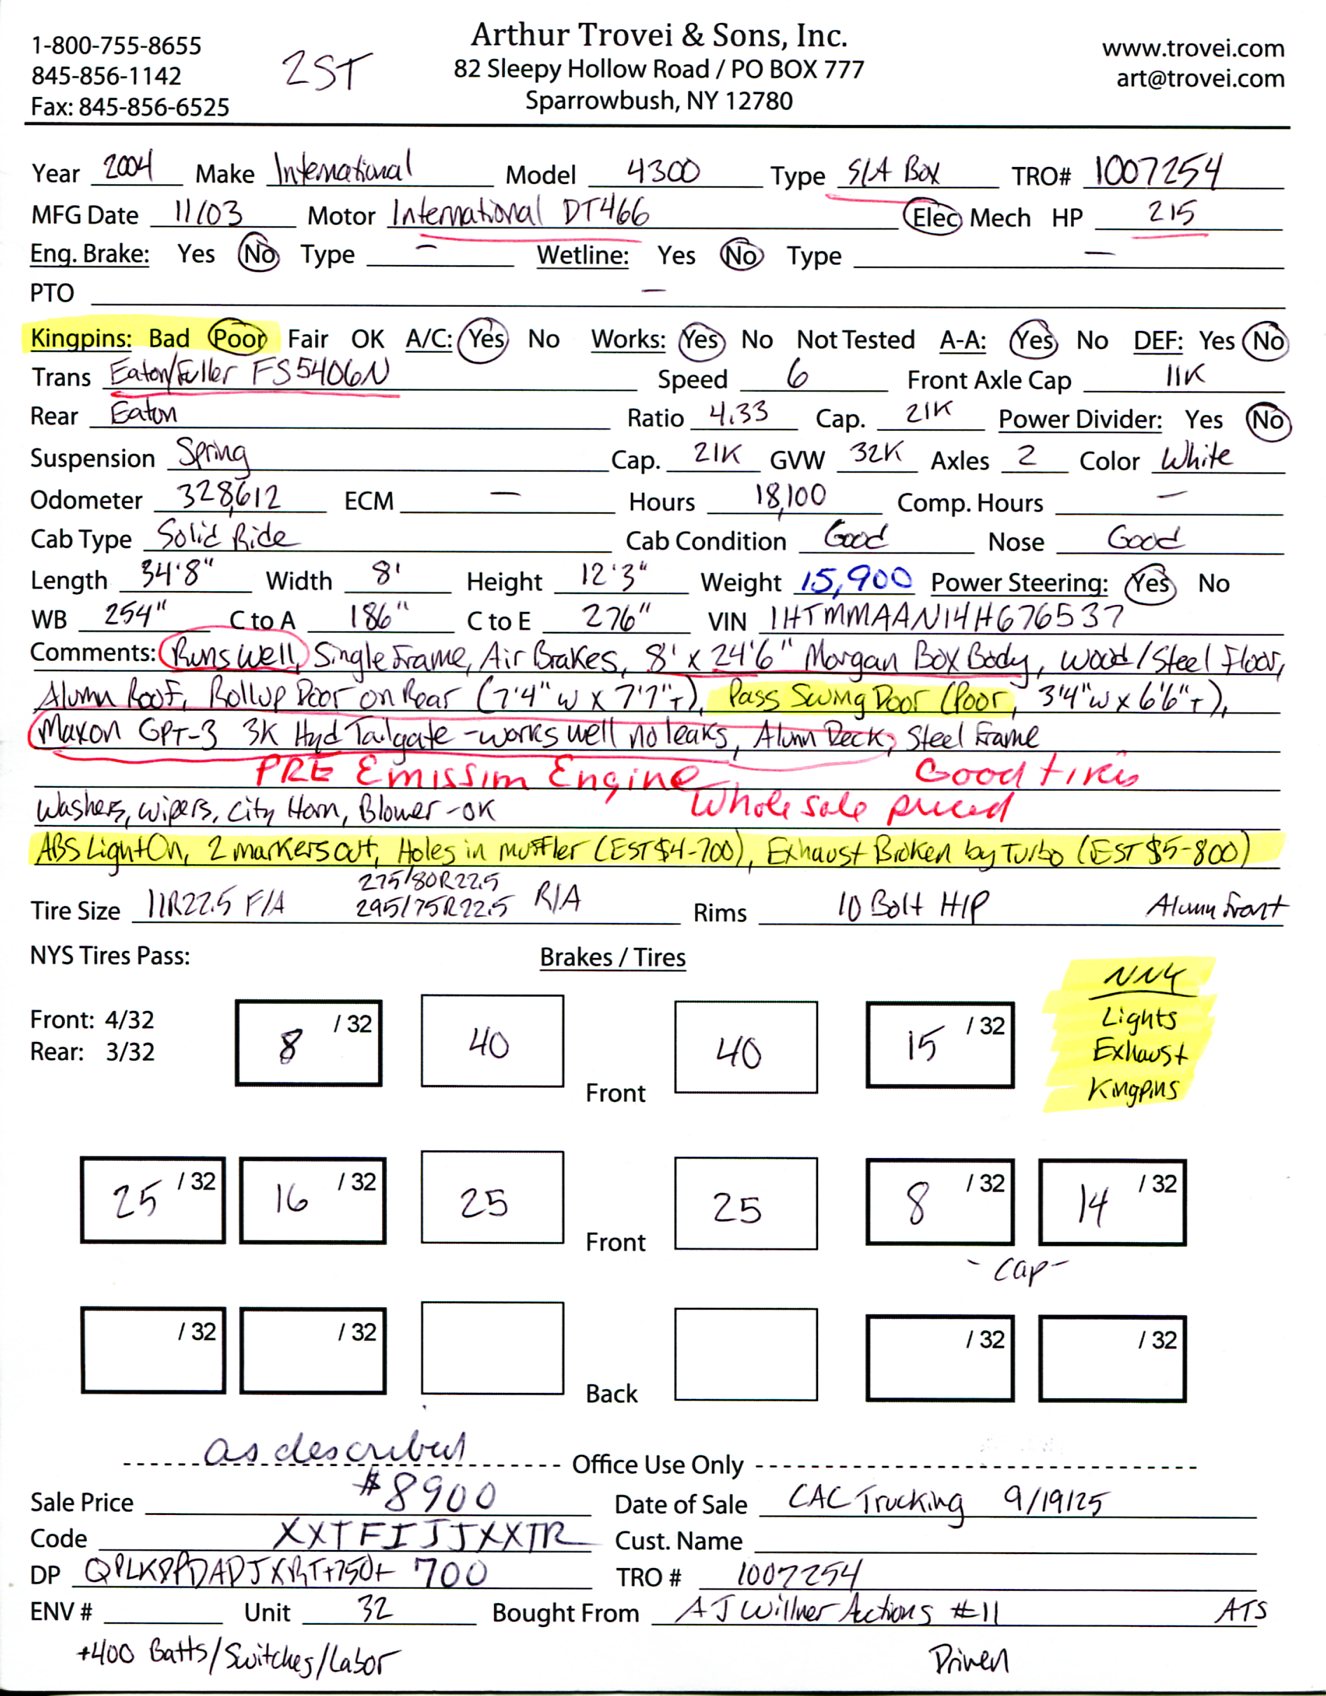 Arthur Trovei & Sons, Inc.
1-800-755-8655
845-856-1142
Fax: 845-856-6525
2ST
82 Sleepy Hollow Road / PO BOX 777
Sparrowbush, NY 12780
www.trovei.com
art@trovei.com
Year 2004 Make International Model 4300 Type S/A Box TRO# 1007254
MFG Date 11/03 Motor International DT466 Elec Mech HP 215
Eng. Brake: Yes No Type — Wetline: Yes No Type —
PTO —
Kingpins: Bad Poor Fair OK A/C: Yes No Works: Yes No Not Tested A-A: Yes No DEF: Yes No
Trans Eaton/Fuller FS5406N Speed 6 Front Axle Cap 11K
Rear Eaton Ratio 4.33 Cap. 21K Power Divider: Yes No
Suspension Spring Cap. 21K GVW 32K Axles 2 Color White
Odometer 328,612 ECM — Hours 18,100 Comp. Hours —
Cab Type Solid Ride Cab Condition Good Nose Good
Length 34'8" Width 8' Height 12'3" Weight 15,900 Power Steering: Yes No
WB 254" C to A 186" C to E 276" VIN 1HTMMAAN14H676537
Comments: Runs Well, Single Frame, Air Brakes, 8' x 24'6" Morgan Box Body, Wood/Steel Floor,
Alumn Roof, Rollup Door on Rear (7'4"w x 7'7"T), Pass Swing Door (Poor, 3'4"w x 6'6"T),
Maxon GPT-3 3K Hyd Tailgate - works well no leaks, Alumn Deck, Steel Frame
PRE Emissim Engine Good tires
Wholesale priced
Washers, wipers, City Horn, Blower - OK
ABS Light On, 2 markers out, Holes in muffler (EST $4-700), Exhaust Broken by Turbo (EST $5-800)
Tire Size 11R22.5 F/A 275/80R22.5 295/75R22.5 R/A Rims 10 Bolt H/P Alumn Front
NYS Tires Pass:
Brakes / Tires
Front: 4/32
Rear: 3/32
8 /32 40 Front 40 15 /32
NNY
Lights
Exhaust
Kingpins
25 /32 16 /32 25 Front 25 8 /32 14 /32
- Cap -
/32 /32 Back /32 /32
as described
Office Use Only
Sale Price $8900 Date of Sale CAC Trucking 9/19/25
Code XXTFIJJXXTR Cust. Name
DP 700 TRO # 1007254
ENV # Unit 32 Bought From AJ Willner Auctions #11 ATS
+400 Batts/Switches/Labor Driven